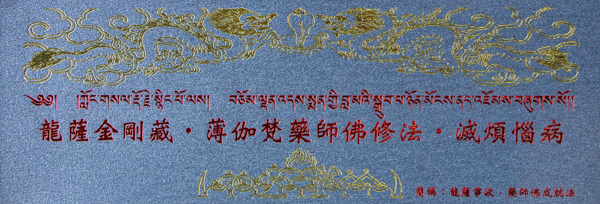 ༄༅། ཀློང་གསལ་རྡོ་རྗེ་སྙིང་པོ་ལས། བཅོམ་ལྡན་འདས་སྨན་གྱི་བླ་མའི་སྒྲུབ་པ་ཉོན་མོངས་ནད་འཇོམས་བཞུགས་སོ།།
龍薩金剛藏・薄伽梵藥師佛修法・滅煩惱病
簡稱：龍薩寧波・藥師佛成就法